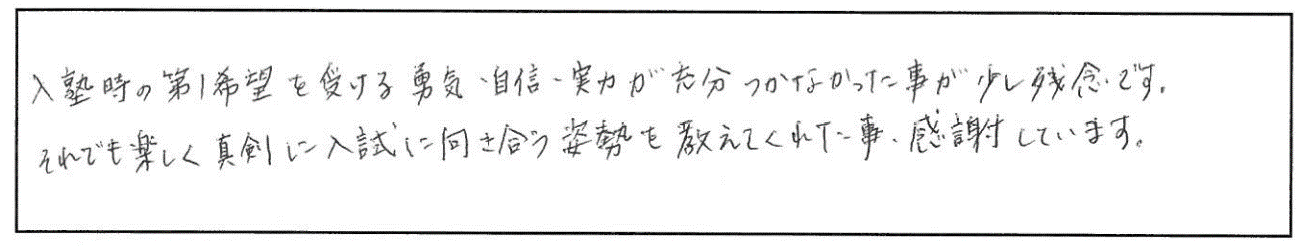 入塾時の第1希望を受ける勇気、自信、実力が充分つかなかった事が少し残念です。
それでも楽しく真剣に入試に向き合う姿勢を教えてくれた事、感謝しています。